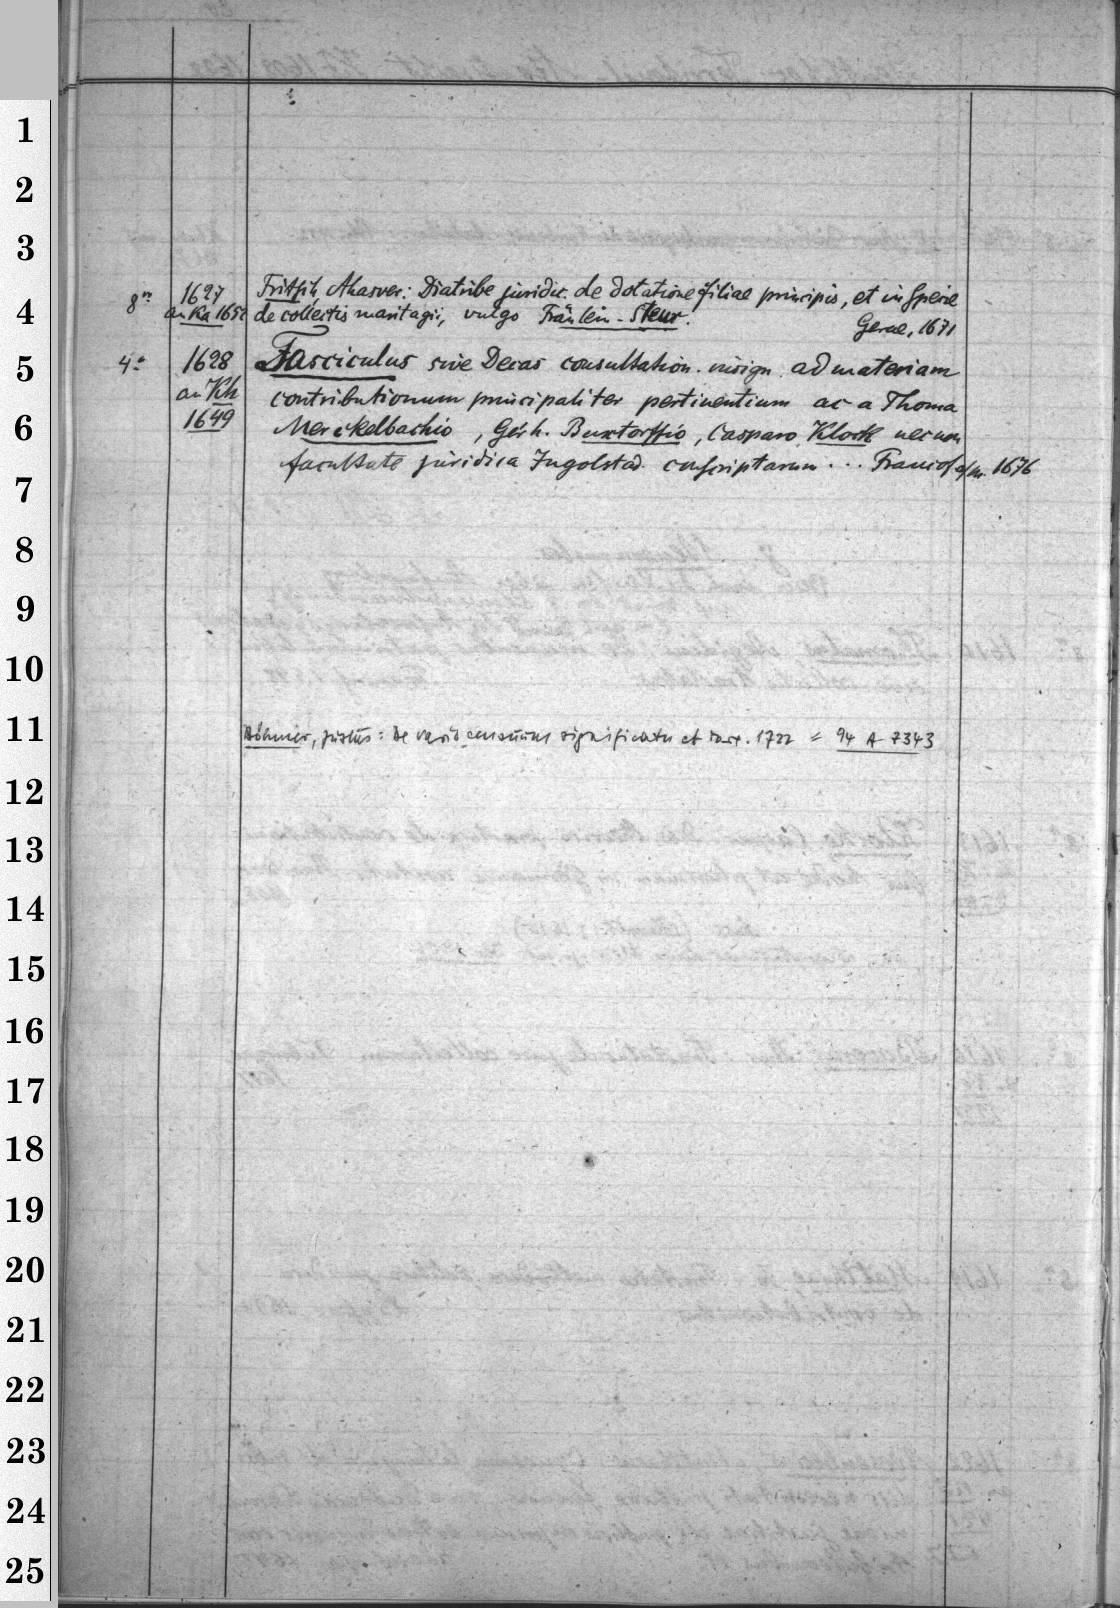 1
2
3
4
5
6
7
8
9
10
11
12
13
14
15
16
17
18
19
20
21
22
23
24
25
8° 1627 Fritsch, Ahasver: Diatribe juridic. de dotatione filiae principis, et in specie
an Ka 1652 de collectis maritagii, vulgo Fräulein-Steur.
Gerae, 1671
4° 1628 Fasciculus sive Decas consultation. insign. ad materiam
an Kh contributionum principaliter pertinentium ac a Thoma
1649 Merckelbachio, Gerh. Buxtorffio, Casparo Klock necnon
facultate juridica Ingolstad. conscriptarum ... Francof a/m. 1676
Böhmer, Justus: De vario censuum significatu et iure. 1722 = 94 A 7343